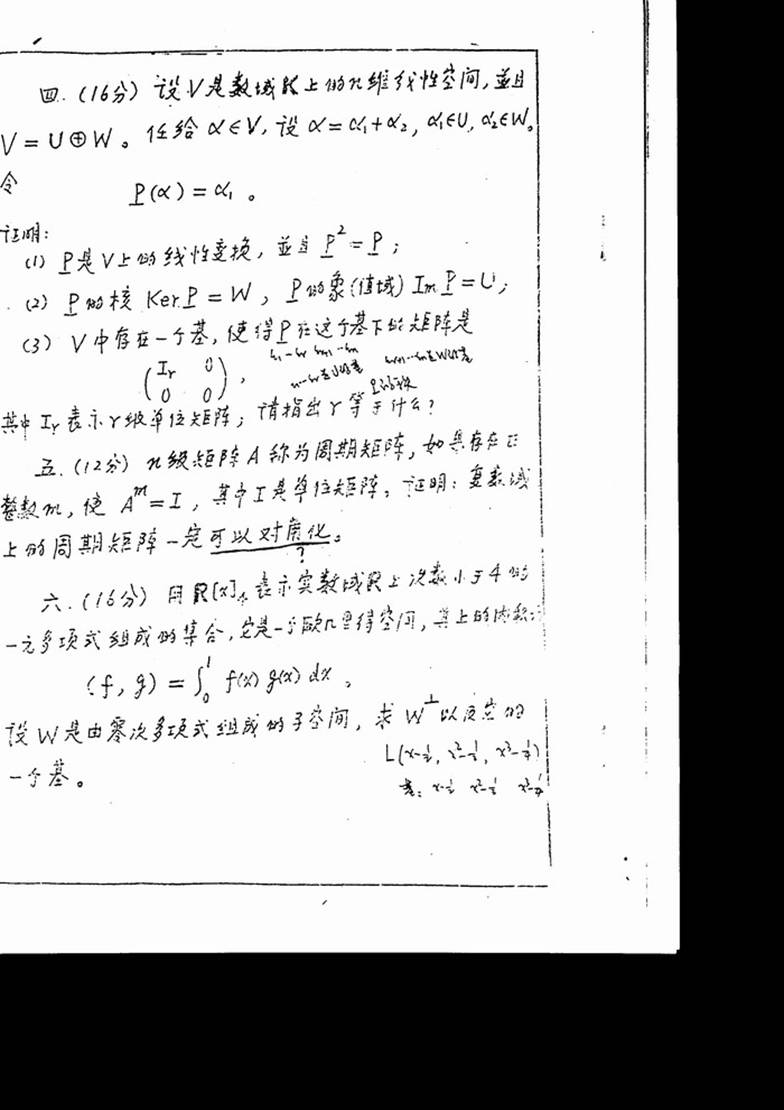 四.(16分) 设V是数域K上的n维线性空间,並且
V=U⊕W。任给α∈V,设α=α₁+α₂, α₁∈U, α₂∈W。
令
P(α)=α₁。
证明:
(1) P是V上的线性变换,並且P²=P;
(2) P的核 Ker P=W, P的象(值域) Im P=U;
(3) V中存在一个基,使得P在这个基下的矩阵是
(Iᵣ 0
0 0),
其中Iᵣ表示r级单位矩阵;请指出r等于什么?
五.(12分) n级矩阵A称为周期矩阵,如果存在正
整数m,使Aᵐ=I,其中I是单位矩阵。证明:复数域
上的周期矩阵一定可以对角化。
?
六.(16分) 用R[x]₄表示实数域R上次数小于4的
一元多项式组成的集合,它是一个欧几里得空间,其上的内积为
(f, g)=∫₀¹ f(x)g(x)dx,
设W是由零次多项式组成的子空间,求W⊥以及它的
L(x-½, x²-⅓, x³-¼)
一个基。
基: x-½ x²-⅓ x³-¼